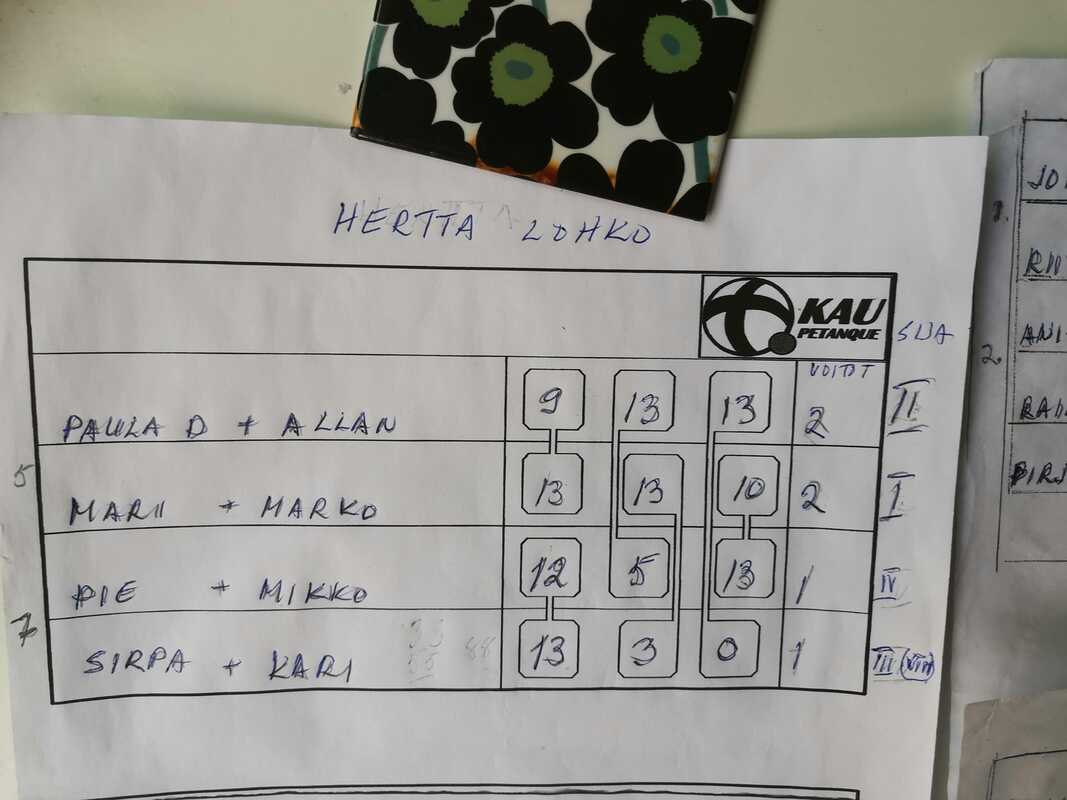 HERTTA LOHKO
KAU
PETANQUE
SIJA
VOITOT
PAULA D + ALLAN 9 13 13 2 II
5 MARII + MARKO 13 13 10 2 I
PIE + MIKKO 12 5 13 1 IV
7 SIRPA + KARI 13 3 0 1 III (VIII)
2.